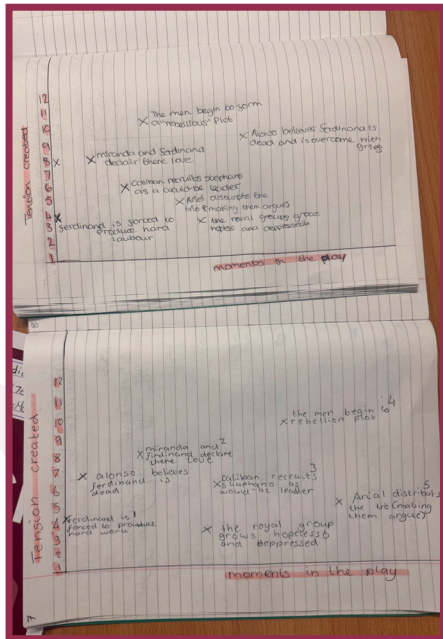 Tension created
12
11
10
9
8
7
6
5
4
3
2
1
The men begin to
rebellious plot
Alonso believes Ferdinand is
dead and is overcome with
grief
miranda and ferdinand
declair there love
caliban recruites stephano
as a would-be leader
(making them argue)
ferdinand is forced to
produce hard
labour
the royal groups grows
hopless and deppressed
moments in the play
8
Tension created
12
11
10
9
8
7
6
5
4
3
2
1
the men begin to 4
rebellion plot
miranda and 2
ferdinand declare
there love
alonso believes
ferdinand is
dead
caliban recruits 3
stephano as
would-be leader
Arial distributs 5
the trio (making
them argue)
ferdinand is 1
forced to produce
hard work
the royal group
grows hopeless 6
and deppressed
moments in the play
7